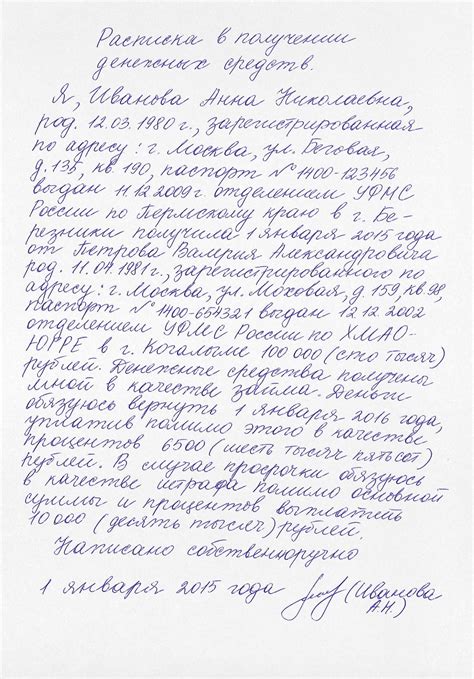 Расписка в получении
денежных средств.
Я, Иванова Анна Николаевна,
род. 12.03.1980 г., зарегистрированная
по адресу: г. Москва, ул. Беговая,
д. 135, кв. 190, паспорт № 1400-123456
выдан 11.12.2009г. отделением УФМС
России по Пермскому краю в г. Бе-
резники получила 1 января 2015 года
от Петрова Валерия Александровича
род. 11.07.1981г., зарегистрированного по
адресу: г. Москва, ул. Моховая, д. 159, кв. 98,
паспорт № 1400-654321 выдан 12.12.2002
отделением УФМС России по ХМАО-
ЮГРЕ в г. Когалыме 100 000 (сто тысяч)
рублей. Денежные средства получены
мной в качестве займа. Деньги
обязуюсь вернуть 1 января 2016 года,
уплатив помимо этого в качестве
процентов 6500 (шесть тысяч пятьсот)
рублей. В случае просрочки обязуюсь
в качестве штрафа помимо основной
суммы и процентов выплатить
10 000 (десять тысяч) рублей.
Написано собственноручно
1 января 2015 года (Иванова
А.Н.)